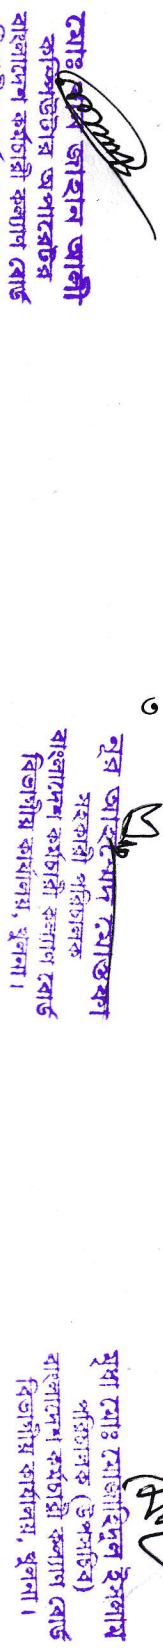 মোঃ জাহান আলী
কম্পিউটার অপারেটর
বাংলাদেশ কর্মচারী কল্যাণ বোর্ড
৩
নুর মোস্তফা
সহকারী পরিচালক
বাংলাদেশ কর্মচারী কল্যাণ বোর্ড
বিভাগীয় কার্যালয়, খুলনা।
মোঃ মোজাহিদুল ইসলাম
পরিচালক (উপসচিব)
বাংলাদেশ কর্মচারী কল্যাণ বোর্ড
বিভাগীয় কার্যালয়, খুলনা।